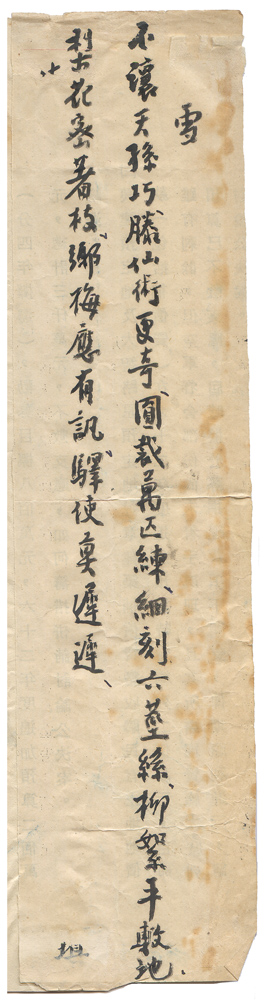 雪
不讓天孫巧滕仙術更奇圓裁萬匹練、細刻六莖絲、柳絮平敷地、
梨花密著枝、鄉梅應有訊、驛使莫遲遲、